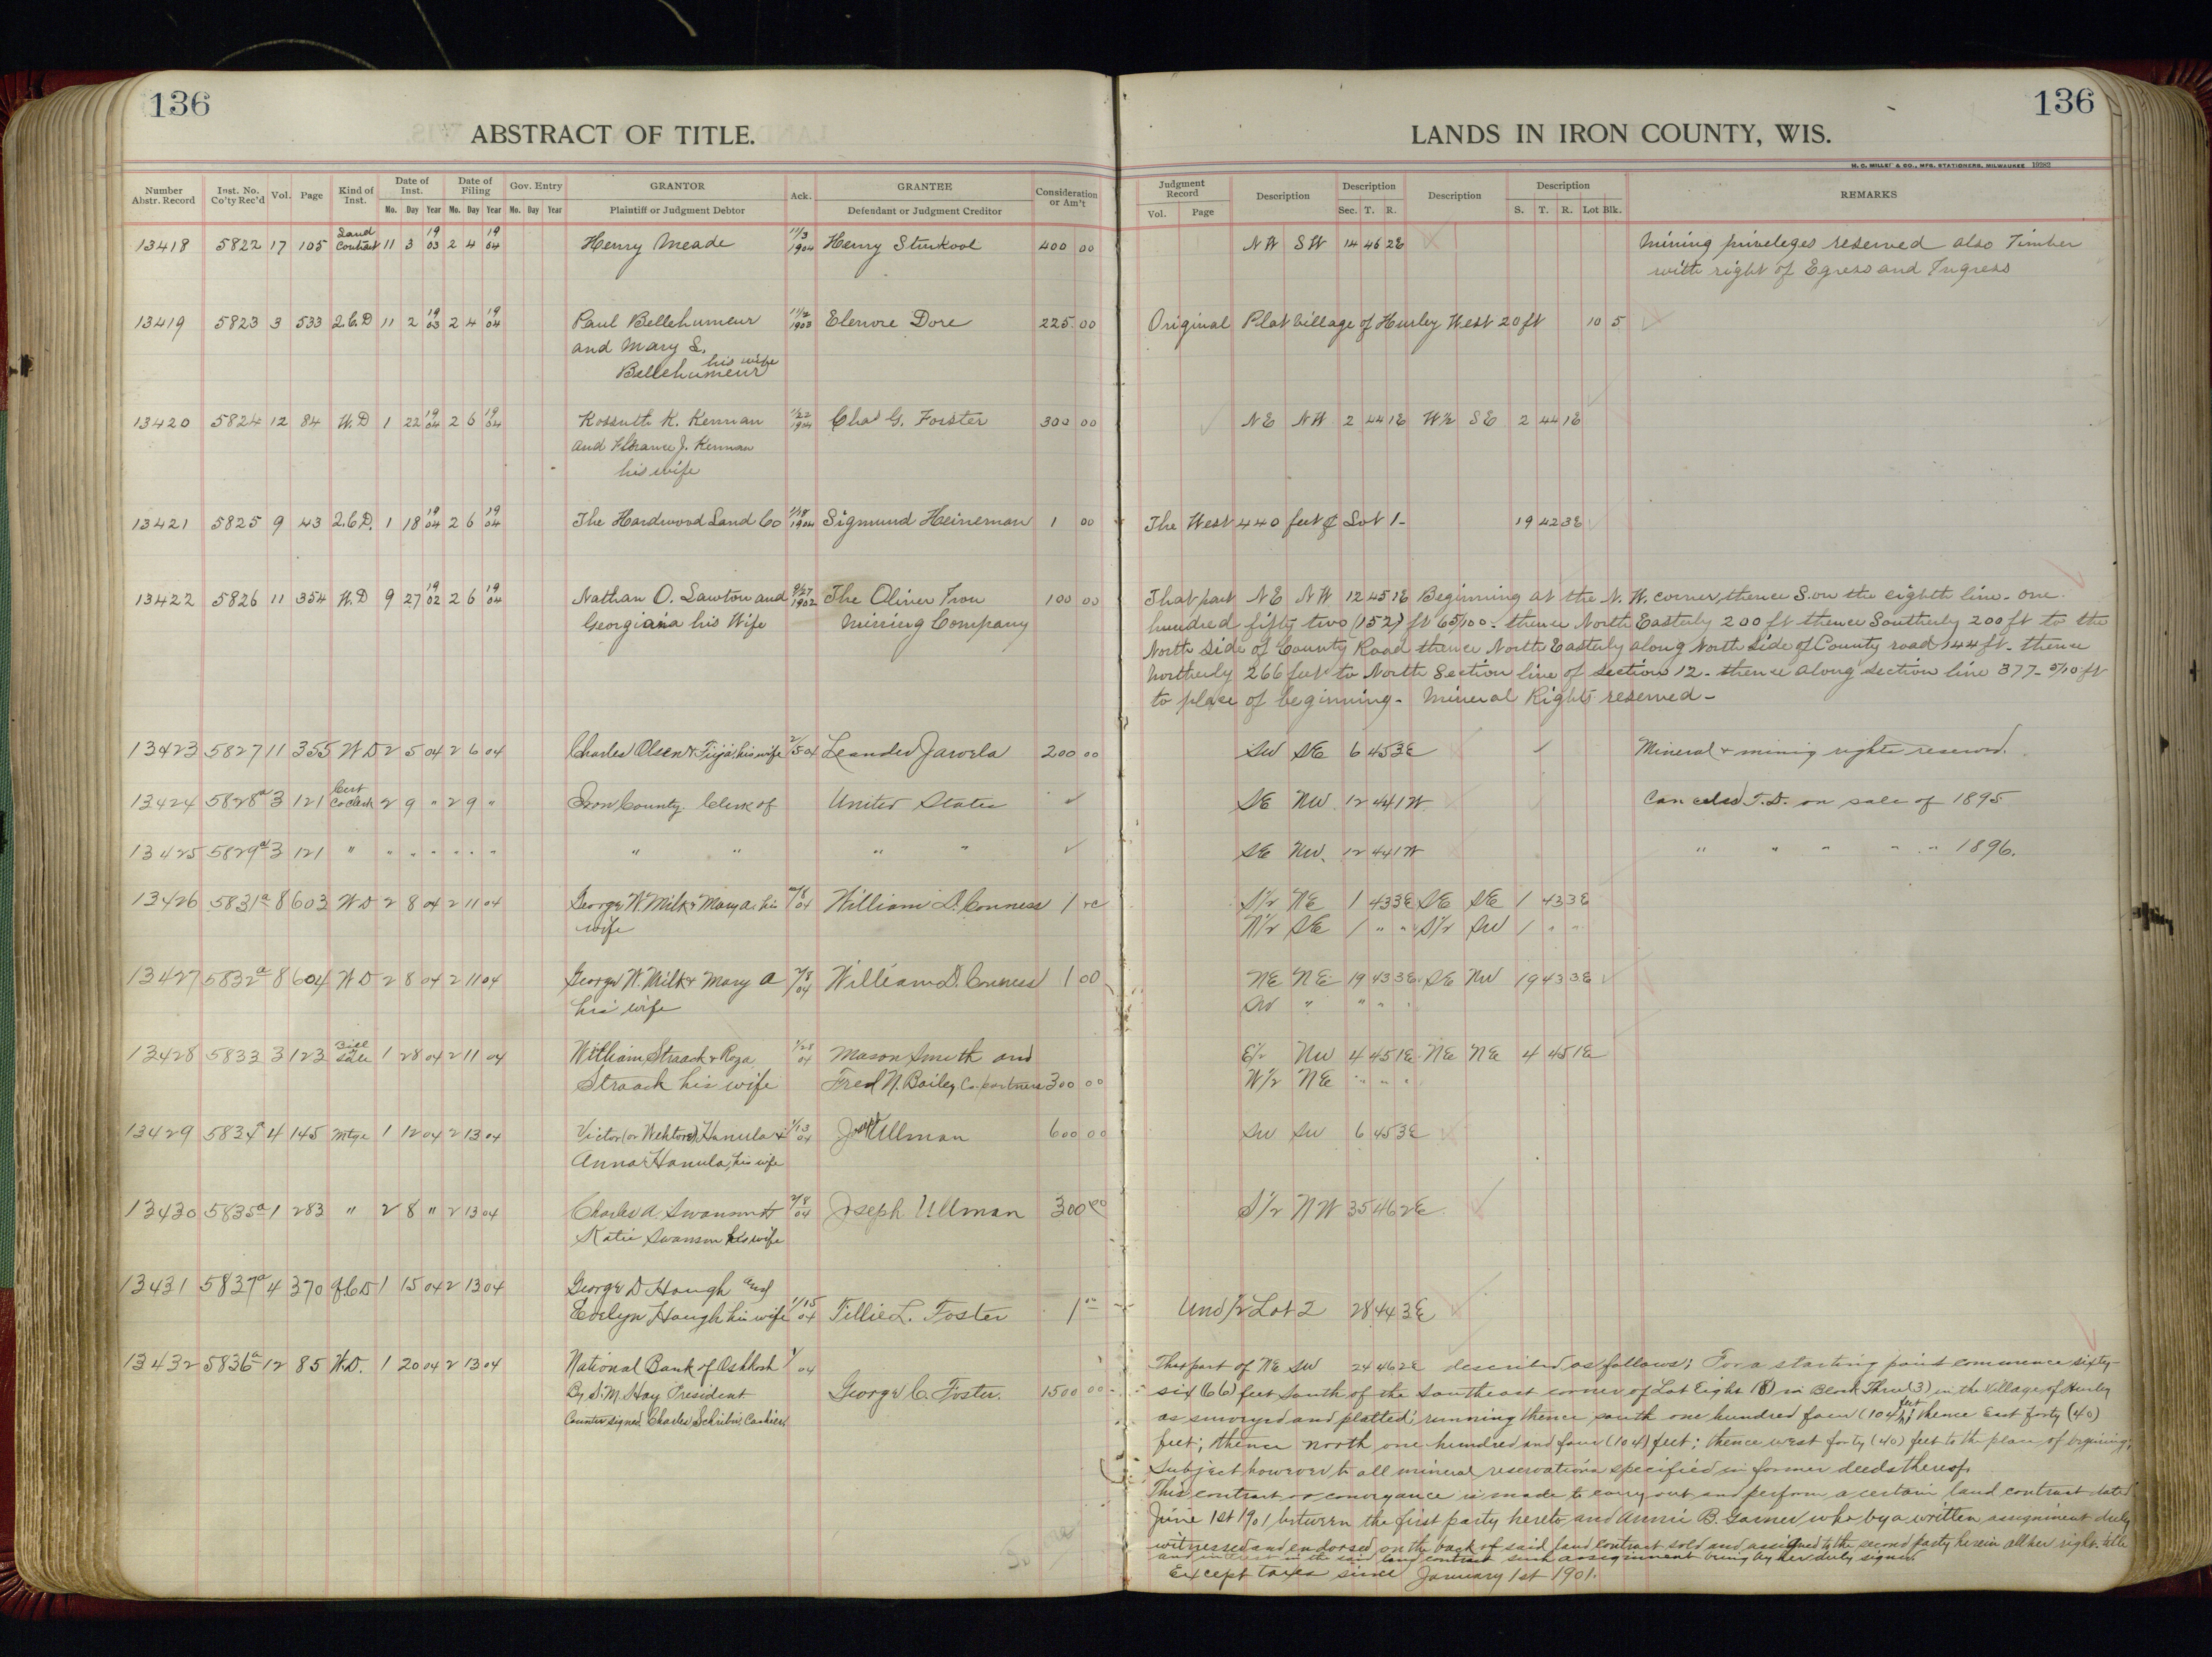 136
136
ABSTRACT OF TITLE.
LANDS IN IRON COUNTY, WIS.
H. C. MILLER & CO., MFG. STATIONERS, MILWAUKEE 19282
Number Abstr. Record Inst. No. Co'ty Rec'd Vol. Page Kind of Inst. Date of Inst. Mo. Day Year Date of Filing Mo. Day Year Gov. Entry Mo. Day Year GRANTOR Plaintiff or Judgment Debtor Ack. GRANTEE Defendant or Judgment Creditor Consideration or Am't
Judgment Record Vol. Page Description Description Sec. T. R. Description Description S. T. R. Lot Blk. REMARKS
13418 5822 17 105 Land Contract 11 3 19 03 2 4 19 04 Henry Meade 11/3 1904 Henry Stukool 400 00 NW SW 14 46 2E Mining privileges reserved also Timber
with right of Egress and Ingress
13419 5823 3 533 Q.C.D 11 2 19 03 2 4 19 04 Paul Bellehumeur 11/2 1903 Elenore Dore 225 00 Original Plat Village of Hurley West 20 ft 10 5
and Mary L.
Bellehumeur his wife
13420 5824 12 84 W.D 1 22 19 04 2 6 19 04 Kossuth K. Kennan 1/22 1904 Chas G. Forster 300 00 NE NW 2 44 1E W½ SE 2 44 1E
and Florance J. Kennan
his wife
13421 5825 9 43 Q.C.D. 1 18 19 04 2 6 19 04 The Hardwood Land Co 1/18 1904 Sigmund Heineman 1 00 The West 440 feet of Lot 1- 19 42 3E
13422 5826 11 354 W.D 9 27 19 02 2 6 19 04 Nathan O. Lawton and 9/27 1902 The Oliver Iron 100 00 That part NE NW 12 45 1E Beginning at the N.W. corner, thence S. on the eighth line - one
Georgiana his Wife Mining Company hundred fifty two (152) ft 65/100 - thence North Easterly 200 ft thence Southerly 200 ft to the
North side of County Road thence North Easterly along North side of County road 144 ft - thence
Northerly 266 feet to North Section line of section 12 - thense along section line 377- 5/10 ft
to place of beginning - Mineral Rights reserved -
13423 5827 11 355 W D 2 5 04 2 6 04 Charles Olsen & Fiija, his wife 2/5 04 Leander Jarvela 200 00 SW SE 6 45 3E Mineral & mining rights reserved.
13424 5828a 3 121 Cert Co Clerk 2 9 " 2 9 " Iron County Clerk of United States ✓ SE NW 12 44 1W Canceled T.D. on sale of 1895
13425 5829a 3 121 " " " " " " " " " " " ✓ SE NW. 12 44 1W " " " " " 1896.
13426 5831a 8 603 W D 2 8 04 2 11 04 George W. Milk & Mary A. his 2/8 04 William D. Conness 1 00 S½ NE 1 43 3E SE SE 1 43 3E
wife N½ SE 1 " " S½ SW 1 " "
13427 5832a 8 604 W D 2 8 04 2 11 04 George W. Milk & Mary A 2/8 04 William D. Conness 1 00 NE NE 19 43 3E SE NW 19 43 3E
his wife SW " " " "
13428 5833 3 123 Bill Sale 1 28 04 2 11 04 William Straack & Roza 1/28 04 Mason Smith and E½ NW 4 45 1E NE NE 4 45 1E
Straack his wife Fred N. Bailey Co-partners 300 00 W½ NE " " "
13429 5834a 4 145 Mtge 1 12 04 2 13 04 Victor (or Wehtori) Hanula & 1/13 04 Joseph Ullman 600 00 SW SW 6 45 3E
Anna Hanula, his wife
13430 5835a 1 283 " 2 8 " 2 13 04 Charles A Swanson & 2/8 04 Joseph Ullman 300 00 S½ NW 35 46 2E
Katie Swanson his wife
13431 5837a 4 370 Q.C.D 1 15 04 2 13 04 George D Hough and
Evelyn Hough his wife 1/15 04 Tillie L. Foster 1 00 Und ½ Lot 2 28 44 3E
13432 5836a 12 85 W.D. 1 20 04 2 13 04 National Bank of Oshkosh 1/ 04 That part of NE SW 24 46 2E described as follows; For a starting point commence sixty-
By S.M. Hay President George C. Foster. 1500 00 six (66) feet south of the southeast corner of Lot Eight (8) in Block Three (3) in the Village of Hurley
Counter signed Charles Schriber Cashier as surveyed and platted; running thence south one hundred four (104) feet; thence East forty (40)
feet; thence north one hundred and four (104) feet; thence west forty (40) feet to the place of beginning;
Subject however to all mineral reservations specified in former deeds thereof.
This contract or conveyance is made to carry out and perform a certain land contract dated
June 1st 1901 between the first party hereto and Annie B. Garner who by a written assignment duly
witnessed and endorsed on the back of said land contract sold and assigned to the second party herein all her right title
and interest in the said land contract such assignment being by her duly signed.
Except taxes since January 1st 1901.